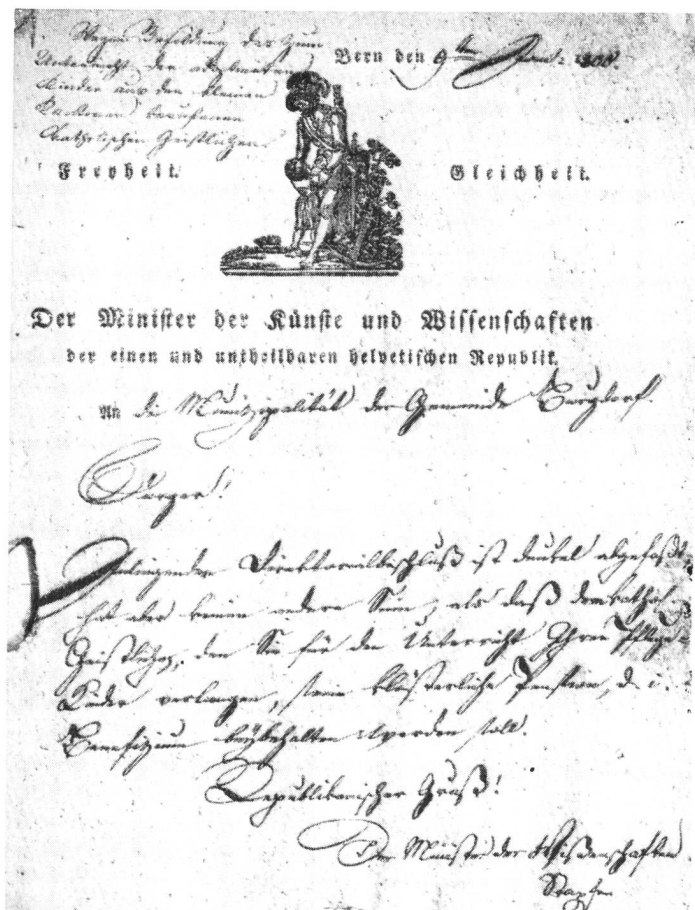 Wegen Besoldung der zum
Unterricht der
Kinder aus den kleinen
Kantonen berufenen
Catholischen Geistlichen
Bern den 9ten Juni 1800
Freyheit.
Gleichheit.
Der Minister der Künste und Wissenschaften
der einen und untheilbaren helvetischen Republik.
An die Munizipalität der Gemeinde Burgdorf.
Bürger!
Direktorialbeschluß ist dunkel abgefaßt,
hat aber keinen andern Sinn, als daß dem kathol.
Geistlichen, den Sie für den Unterricht Ihrer Pflege-
Kinder verlangen, seine klösterliche Pension, d. i.
Benefizium beybehalten werden soll.
Republikanischer Gruß!
Der Minister der Wißenschaften
Stapfer